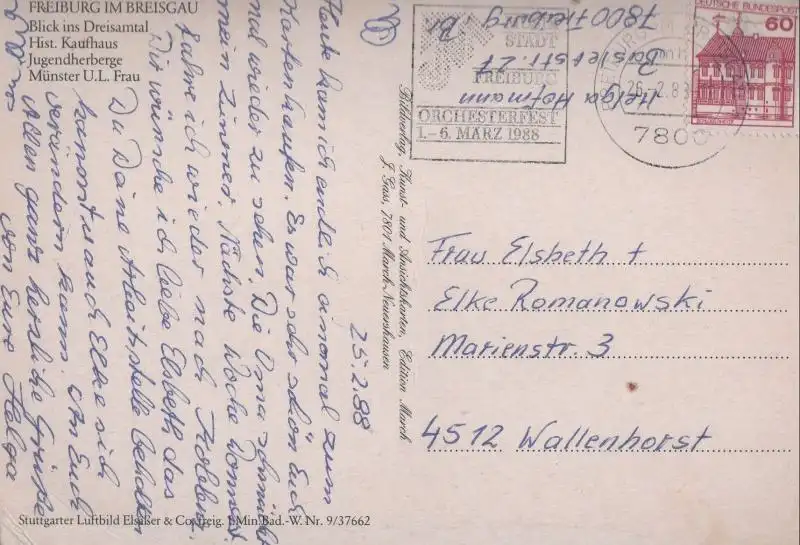 FREIBURG IM BREISGAU
Blick ins Dreisamtal
Hist. Kaufhaus
Jugendherberge
Münster U.L. Frau
25.2.88
Heute kam ich endlich einmal zum
Kartenkaufen. Es war sehr schön Euch
mal wieder zu sehen. Die Oma schmückt
mein Zimmer. Nächste Woche Donnerst.
fahre ich wieder nach Koblenz.
Dir wünsche ich liebe Elsbeth das
Du Deine Arbeitsstelle behalten
kannst u. auch Elke sich
verändern kann. An Euch
Allen ganz herzliche Grüße
von Eure Helga
Bildverlag, Kunst- und Ansichtskarten, Edition March
J. Gass, 7801 March-Neuershausen
Helga Hofmann
Baslerstr. 27
7800 Freiburg i. Br
STADT
FREIBURG
ORCHESTERFEST
1.–6. MÄRZ 1988
26.-2.88
7800
DEUTSCHE BUNDESPOST
60
Frau Elsbeth +
Elke Romanowski
Marienstr. 3
4512 Wallenhorst
Stuttgarter Luftbild Elsäßer & Co. freig. I. Min. Bad.-W. Nr. 9/37662